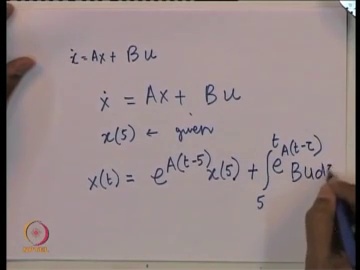 ẋ = Ax + Bu
ẋ = Ax + Bu
x(5) ← given
x(t) = e^{A(t-5)} x(5) + ∫_5^t e^{A(t-τ)} Budτ